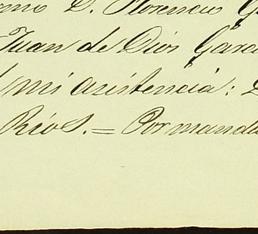 D. Florencio
Juan de Dios Garci
mi asistencia:
Rios. = Por manda